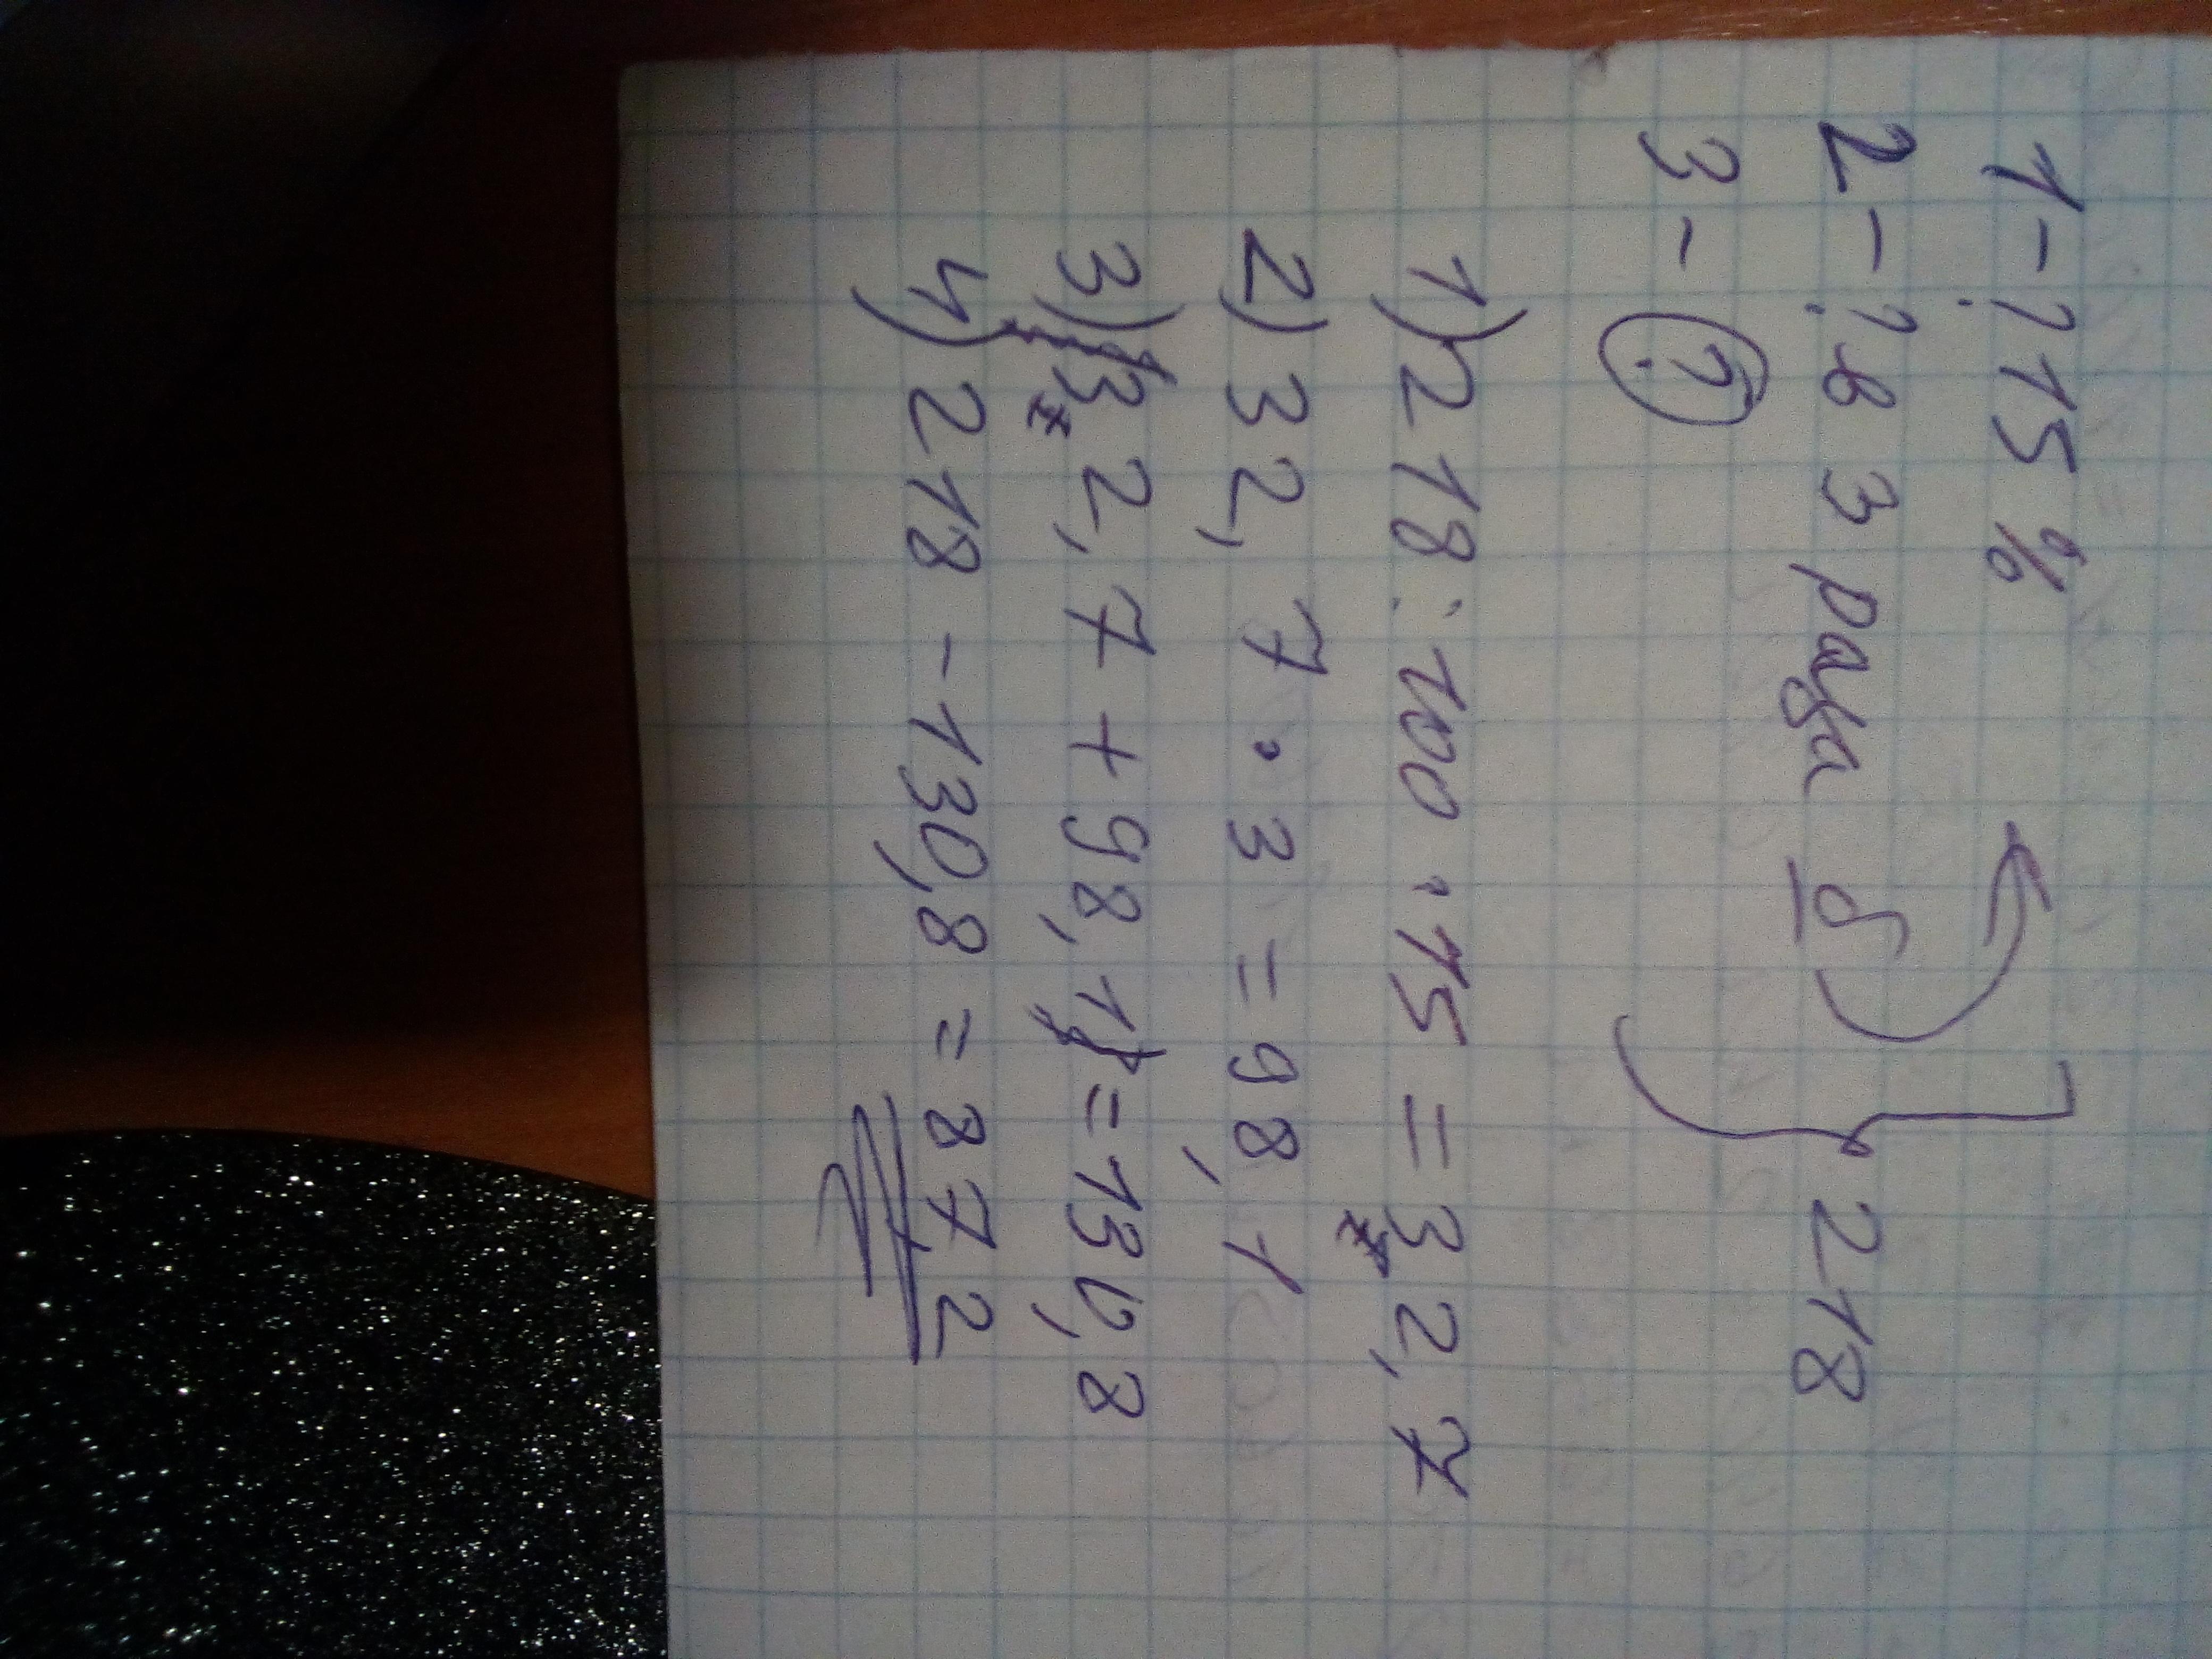 1 - ? 15 %
2 - ? в 3 раза б } 218
3 - ?
1) 218 : 100 · 15 = 32,7
2) 32,7 · 3 = 98,1
3) 32,7 + 98,1 = 130,8
4) 218 - 130,8 = 87,2